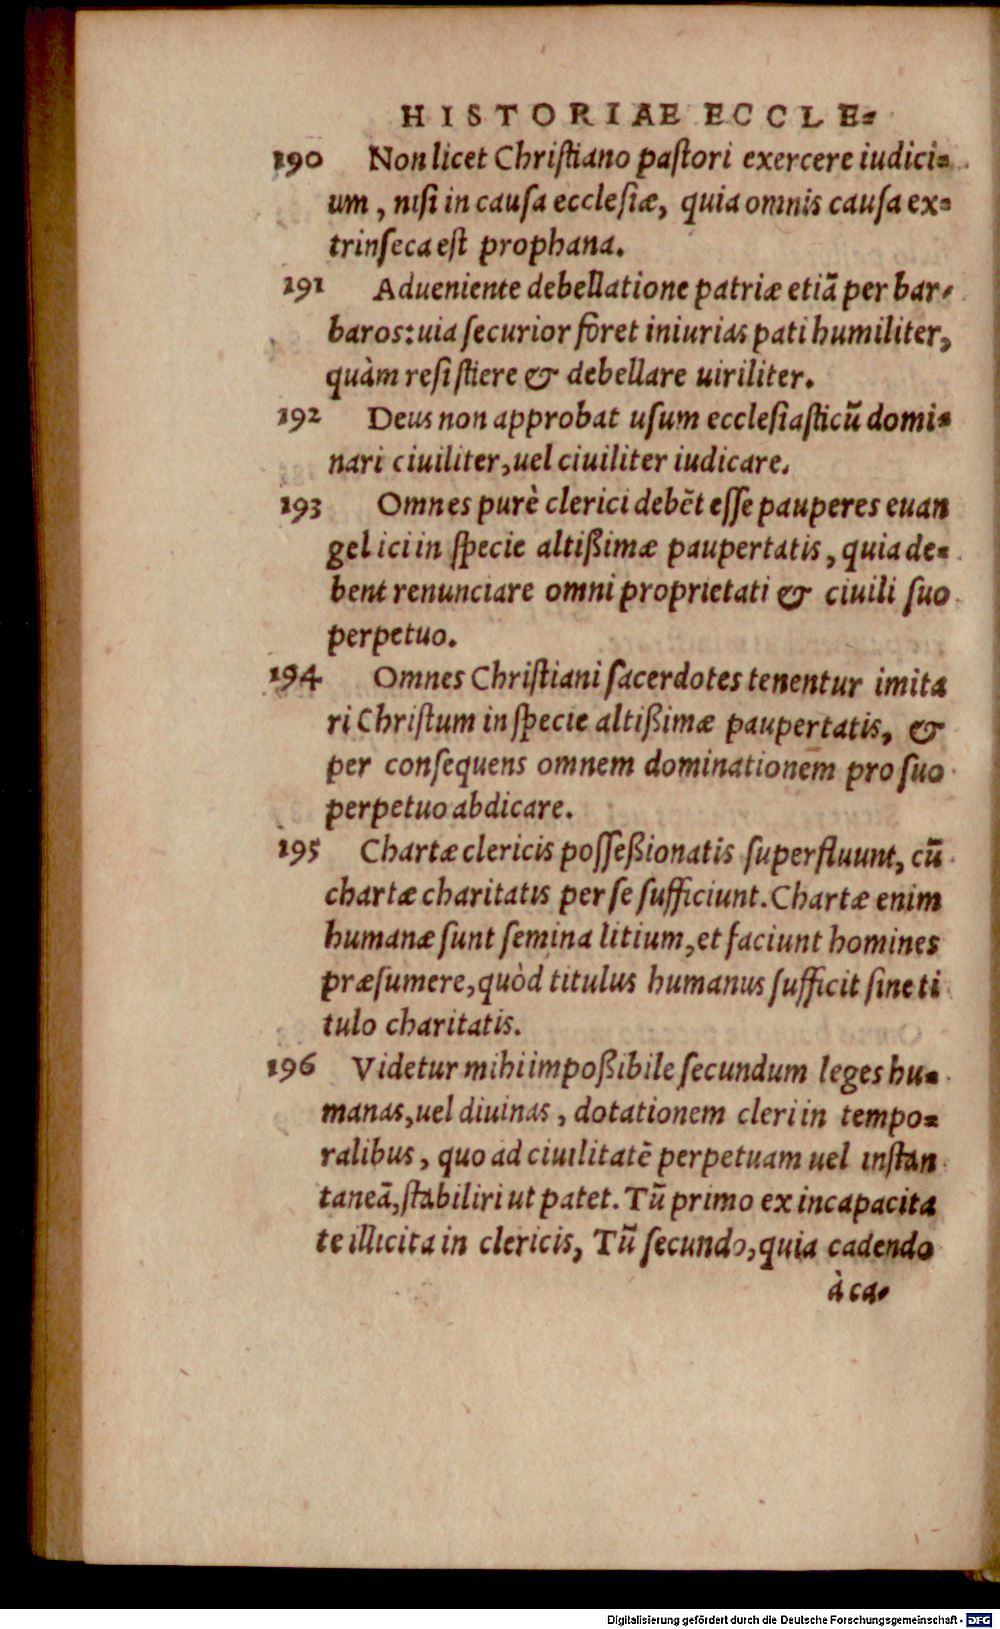 HISTORIAE ECCLE-
190 Non licet Christiano pastori exercere iudici-
um, nisi in causa ecclesiæ, quia omnis causa ex-
trinseca est prophana.
191 Adueniente debellatione patriæ etiã per bar-
baros: uia securior foret iniurias pati humiliter,
quàm resistiere & debellare uiriliter.
192 Deus non approbat usum ecclesiasticũ domi-
nari ciuiliter, uel ciuiliter iudicare.
193 Omnes purè clerici debẽt esse pauperes euan
gelici in specie altißimæ paupertatis, quia de-
bent renunciare omni proprietati & ciuili suo
perpetuo.
194 Omnes Christiani sacerdotes tenentur imita
ri Christum in specie altißimæ paupertatis, &
per consequens omnem dominationem pro suo
perpetuo abdicare.
195 Chartæ clericis posseßionatis superfluunt, cũ
chartæ charitatis per se sufficiunt. Chartæ enim
humanæ sunt semina litium, et faciunt homines
præsumere, quòd titulus humanus sufficit sine ti
tulo charitatis.
196 Videtur mihi impoßibile secundum leges hu-
manas, uel diuinas, dotationem cleri in tempo-
ralibus, quo ad ciuilitatẽ perpetuam uel instan
taneã, stabiliri ut patet. Tũ primo ex incapacita
te illicita in clericis, Tũ secundo, quia cadendo
à ca-
Digitalisierung gefördert durch die Deutsche Forschungsgemeinschaft - DFG